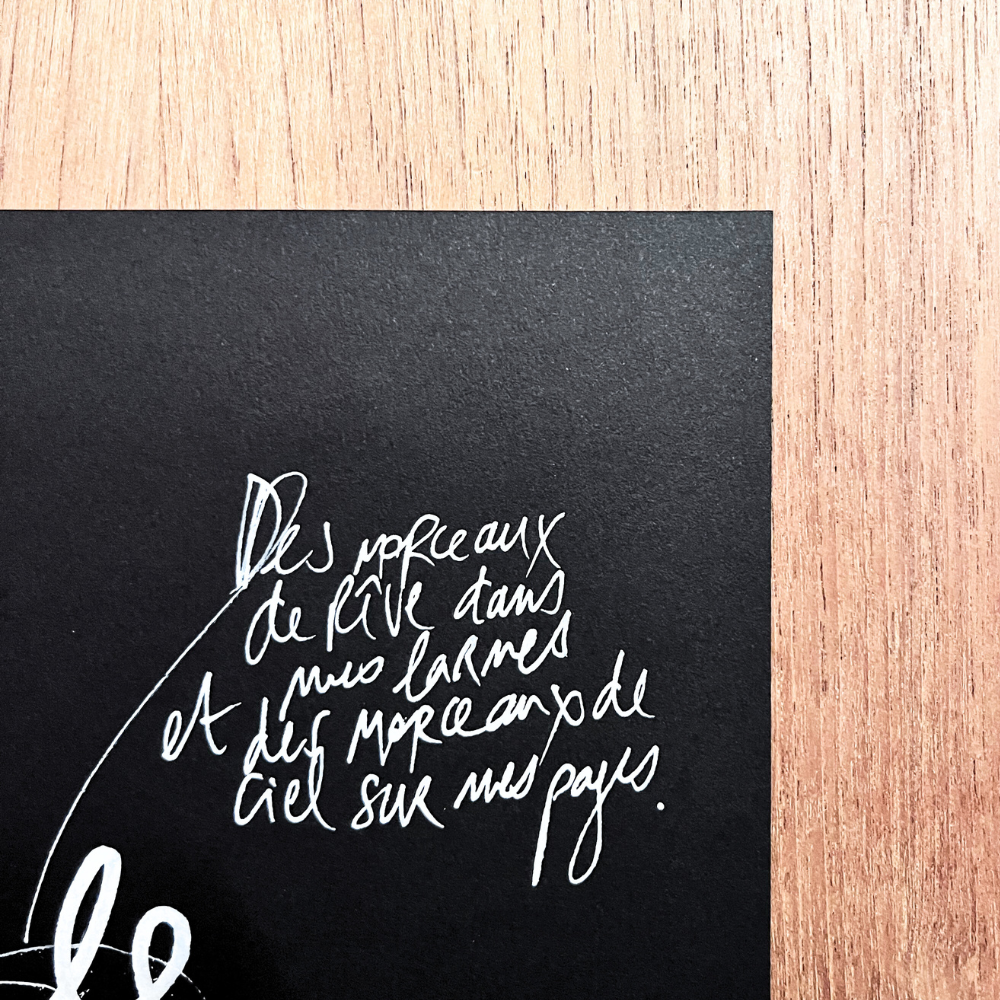 Des morceaux
de rêve dans
mes larmes
et des morceaux de
ciel sur mes pages.